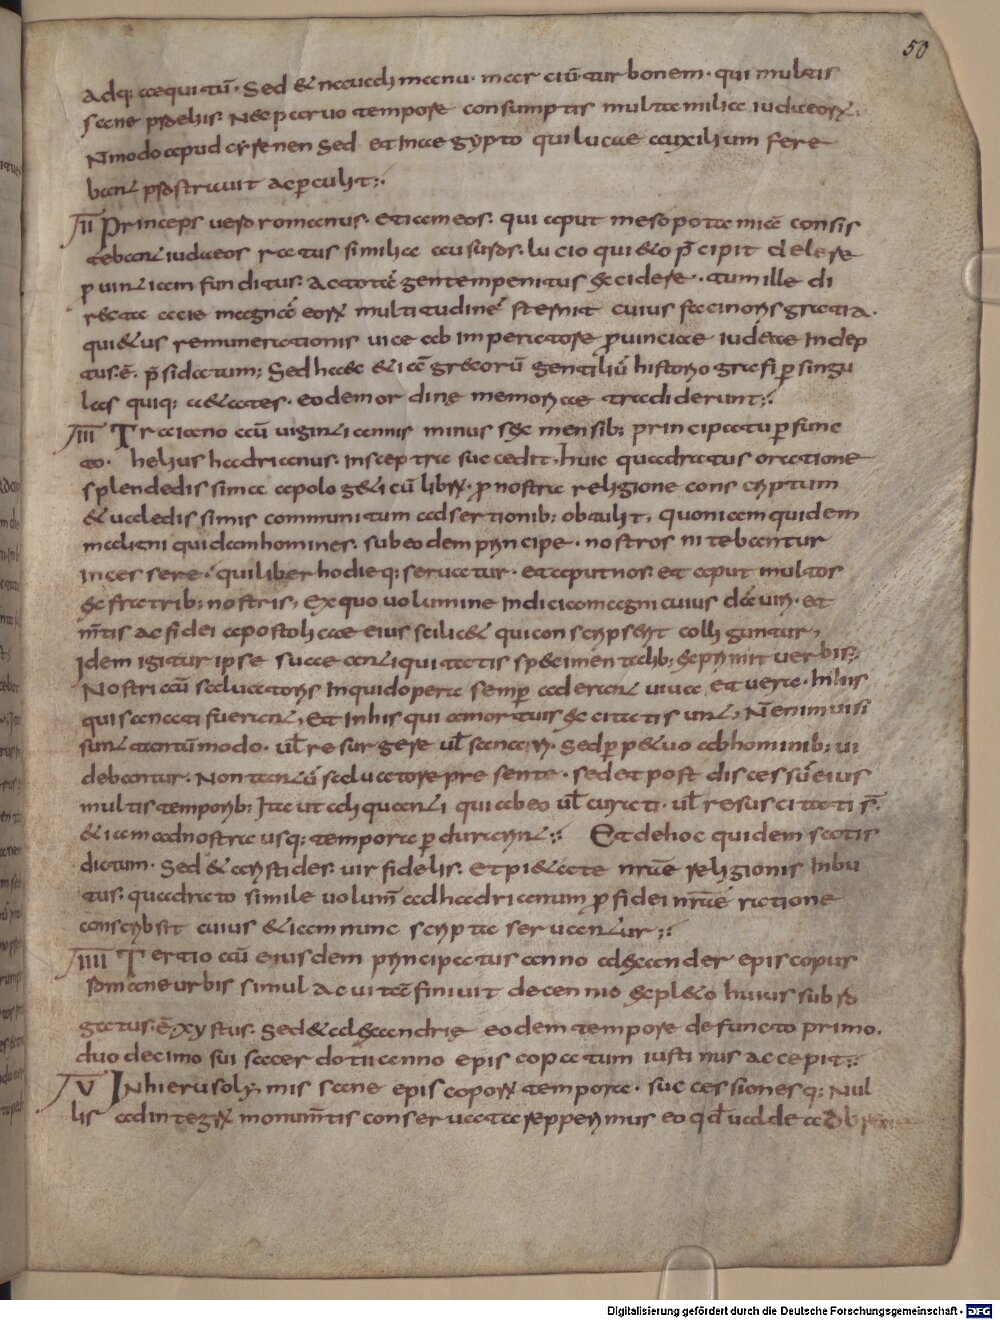 50
Adq: aequitũ. Sed & nauali manu. marciũ turbonem. qui multis
sane prœliis. Nec paruo tempore consumptis multa milia iudæorꝝ.
Nmodo apud cyrenen Sed et in aegypto qui luciae auxilium fere
bant prostrauit ac ꝑculit:.
II Princeps uero romanus. etiam eos. qui aput mesopotamiã consis
tebant iudaeos ratus similia ausuros. lucio qui&o p̄cipit delere
ꝓuintiam funditus. ac totã gentem penitus excidere. tum ille di
recta acie magnã eorꝝ multitudinẽ sternit cuius facinoris gratia.
qui&us remunerationis uice ab imperatore ꝓuinciae iudeae indep
tus.ẽ. p̄sidatum; Sed haec &iã grecorũ gentiliũ historiografi ꝑ singu
las quiq: a&ates. eodem ordine memoriae tradiderunt:.
III Traiano aũ uiginti annis minus sex mensib; principatu ꝑfunc
to. helius hadrianus. insceptra succedit. huic quadratus oratione
splendedissima apolog&icũ librꝝ. ꝓ nostra religione conscriptum
& ualedissimis communitum adsertionib; obtulit, quoniam quidem
maligni quidam homines. sub eodem principe. nostros nitebantur
incessere. qui liber hodieq; seruatur. et aput nos. et aput multos
ex fratrib; nostris, Ex quo uolumine indicia magni cuius dã uiri. et
m̄tis ac fidei apostolicae eius scilic& qui conscripserit colligantur,
Idem igitur ipse suae antiquitatis specimen talib; exprimit uerbis;
Nostri aũ saluatoris inquid opera semꝑ aderant uiua, et uera. In his
qui sanati fuerant, et in his qui a mortuis excitatis unt, N̄ enim uisi
sunt tantũmodo. ul̄ resurgere ul̄ sanari. Sed ꝑp&uo ab hominib; ui
debantur. Non tantũ saluatore presente. sed et post discessũ eius
multis temporib; Ita ut aliquanti qui ab eo ul̄ curati. ul̄ resuscitati s̄.
&iam ad nostra usq; tempora ꝑdurarint:. Et de hoc quidem satis
dictum. Sed & aristides. uir fidelis. et pi&ate nr̄ae religionis inbu
tus. quadrato simile uolum̄ ad hadrianum ꝓ fidei nr̄ae ratione
conscribsit cuius &iam nunc scripta seruantur;.
IIII Tertio aũ eiusdem principatus anno alexander episcopus
romane urbis simul ac uitã finiuit decennio expl&o huius subro
gatus.ẽ. xystus. Sed & alexandrie eodem tempore defuncto primo.
duodecimo sui sacerdotii anno episcopatum iustinus accepit:.
V In hierusolymis sane episcoporꝝ tempora. successionesq; Nul
lis ad integrꝝ monum̄tis conseruata repperimus eo qd̄ ualde ad
Digitalisierung gefördert durch die Deutsche Forschungsgemeinschaft - DFG